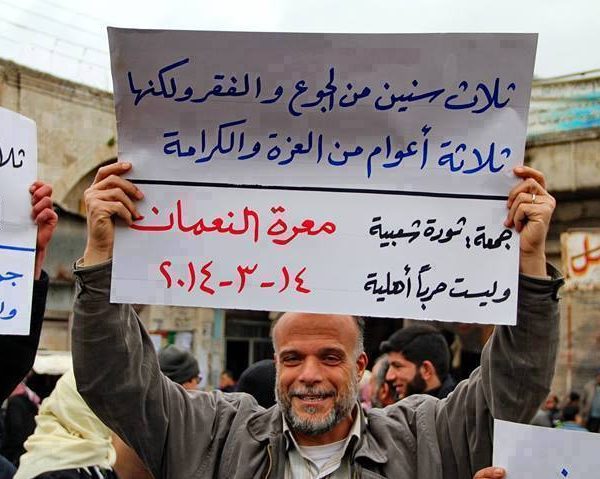 ثلاث سنين من الجوع والفقر ولكنها
ثلاثة أعوام من العزة والكرامة
جمعة: ثورة شعبية
وليست حرباً أهلية
معرة النعمان
١٤-٣-٢٠١٤